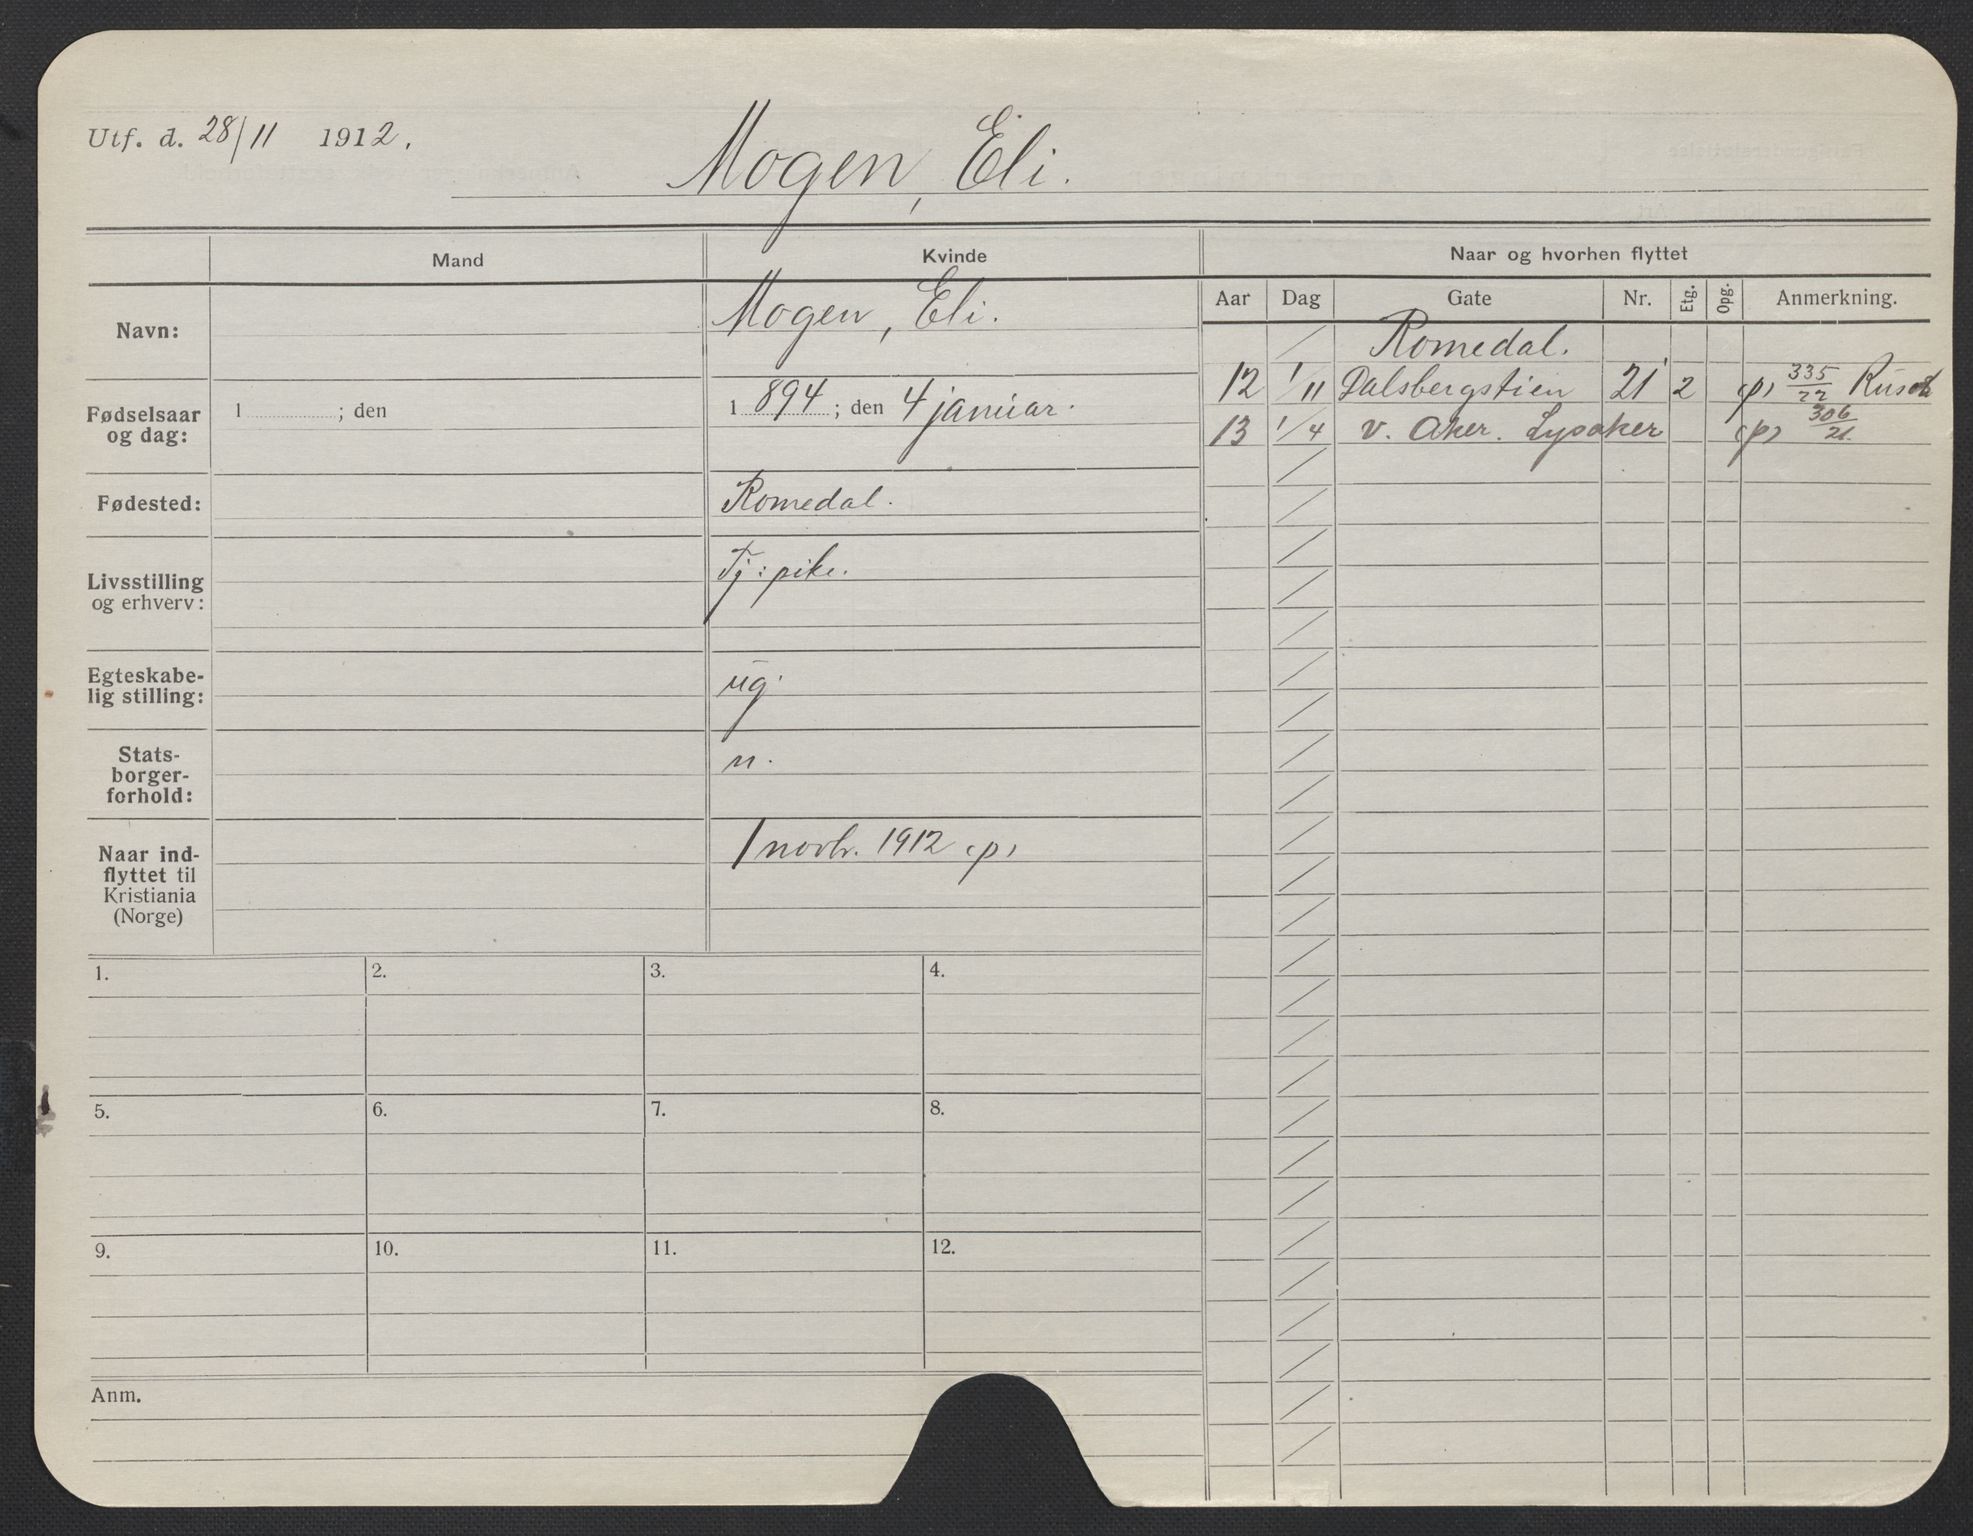 Utf. d. 28/11 1912.
Mogen, Eli.
Mand
Kvinde
Naar og hvorhen flyttet
Aar Dag Gate Nr. Etg. Opg. Anmerkning.
Navn: Mogen, Eli.
Fødselsaar og dag: 1 ; den 1 894 ; den 4 januar.
Fødested: Romedal.
Livsstilling og erhverv: Tj: pike.
Egteskabe-
lig stilling: ug.
Stats-
borger-
forhold: n.
Naar ind-
flyttet til
Kristiania
(Norge) 1 novbr. 1912 (p)
Romedal.
12 1/11 Dalsbergstien 21 2 (p) 335/22
13 1/4 v. Aker. Lysaker (p) 306/21.
1. 2. 3. 4.
5. 6. 7. 8.
9. 10. 11. 12.
Anm.